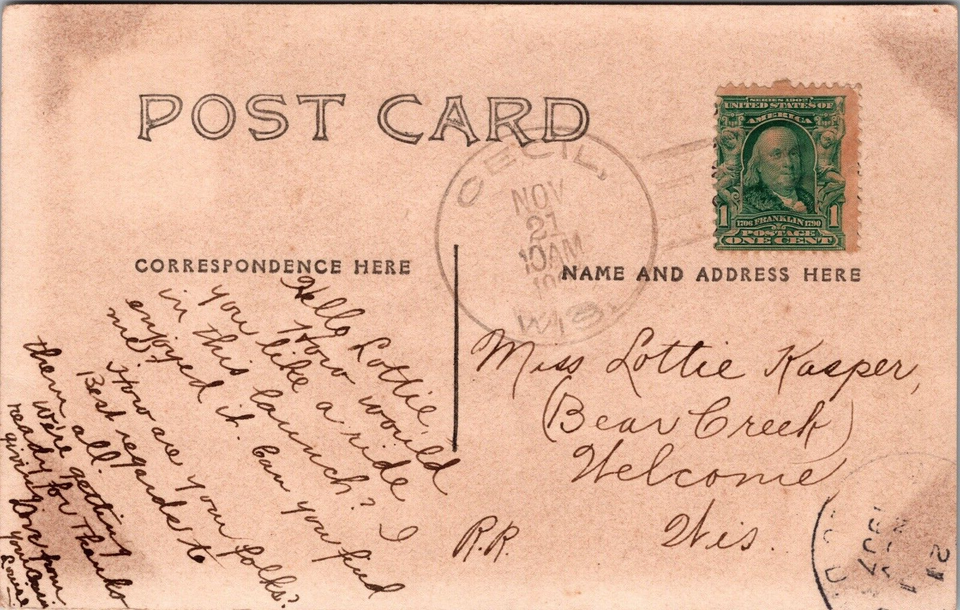 POST CARD
SERIES 1902
UNITED STATES OF
AMERICA
1 1
1706 FRANKLIN 1790
POSTAGE
ONE CENT
CECIL,
NOV
21
10AM
WIS.
CORRESPONDENCE HERE
NAME AND ADDRESS HERE
Hello Lottie.
How would
you like a ride
in this launch? I
enjoyed it. Can you find
me?
How are your folks?
Best regards to
them all.
We're getting
ready for Thanks
giving
from
Louise
Miss Lottie Kasper,
(Bear Creek)
Welcome
R.R. Wis.
NOV
21
1907